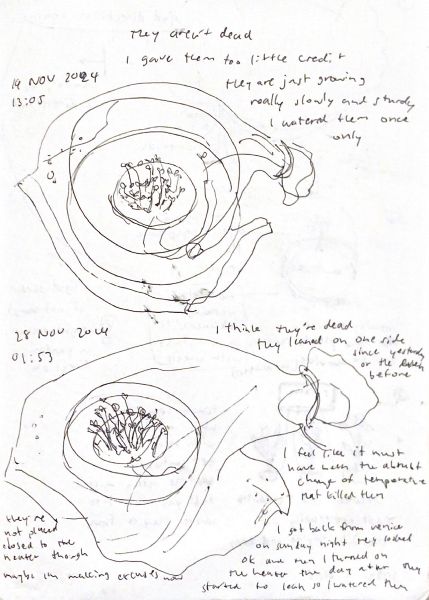 They aren't dead
I gave them too little credit
19 NOV 2024
13:05
they are just growing
really slowly and sturdy
I watered them once
only
28 NOV 2024
01:53
I think they're dead
they leaned on one side
since yesterday
or the
before
I feel like it must
have been the abrupt
change of temperature
that killed them
they're
not placed
closed to the
heater though
maybe im making excuses now
I got back from venice
on sunday night they looked
ok and then I turned on
the heater the day after they
started to lean so I watered them